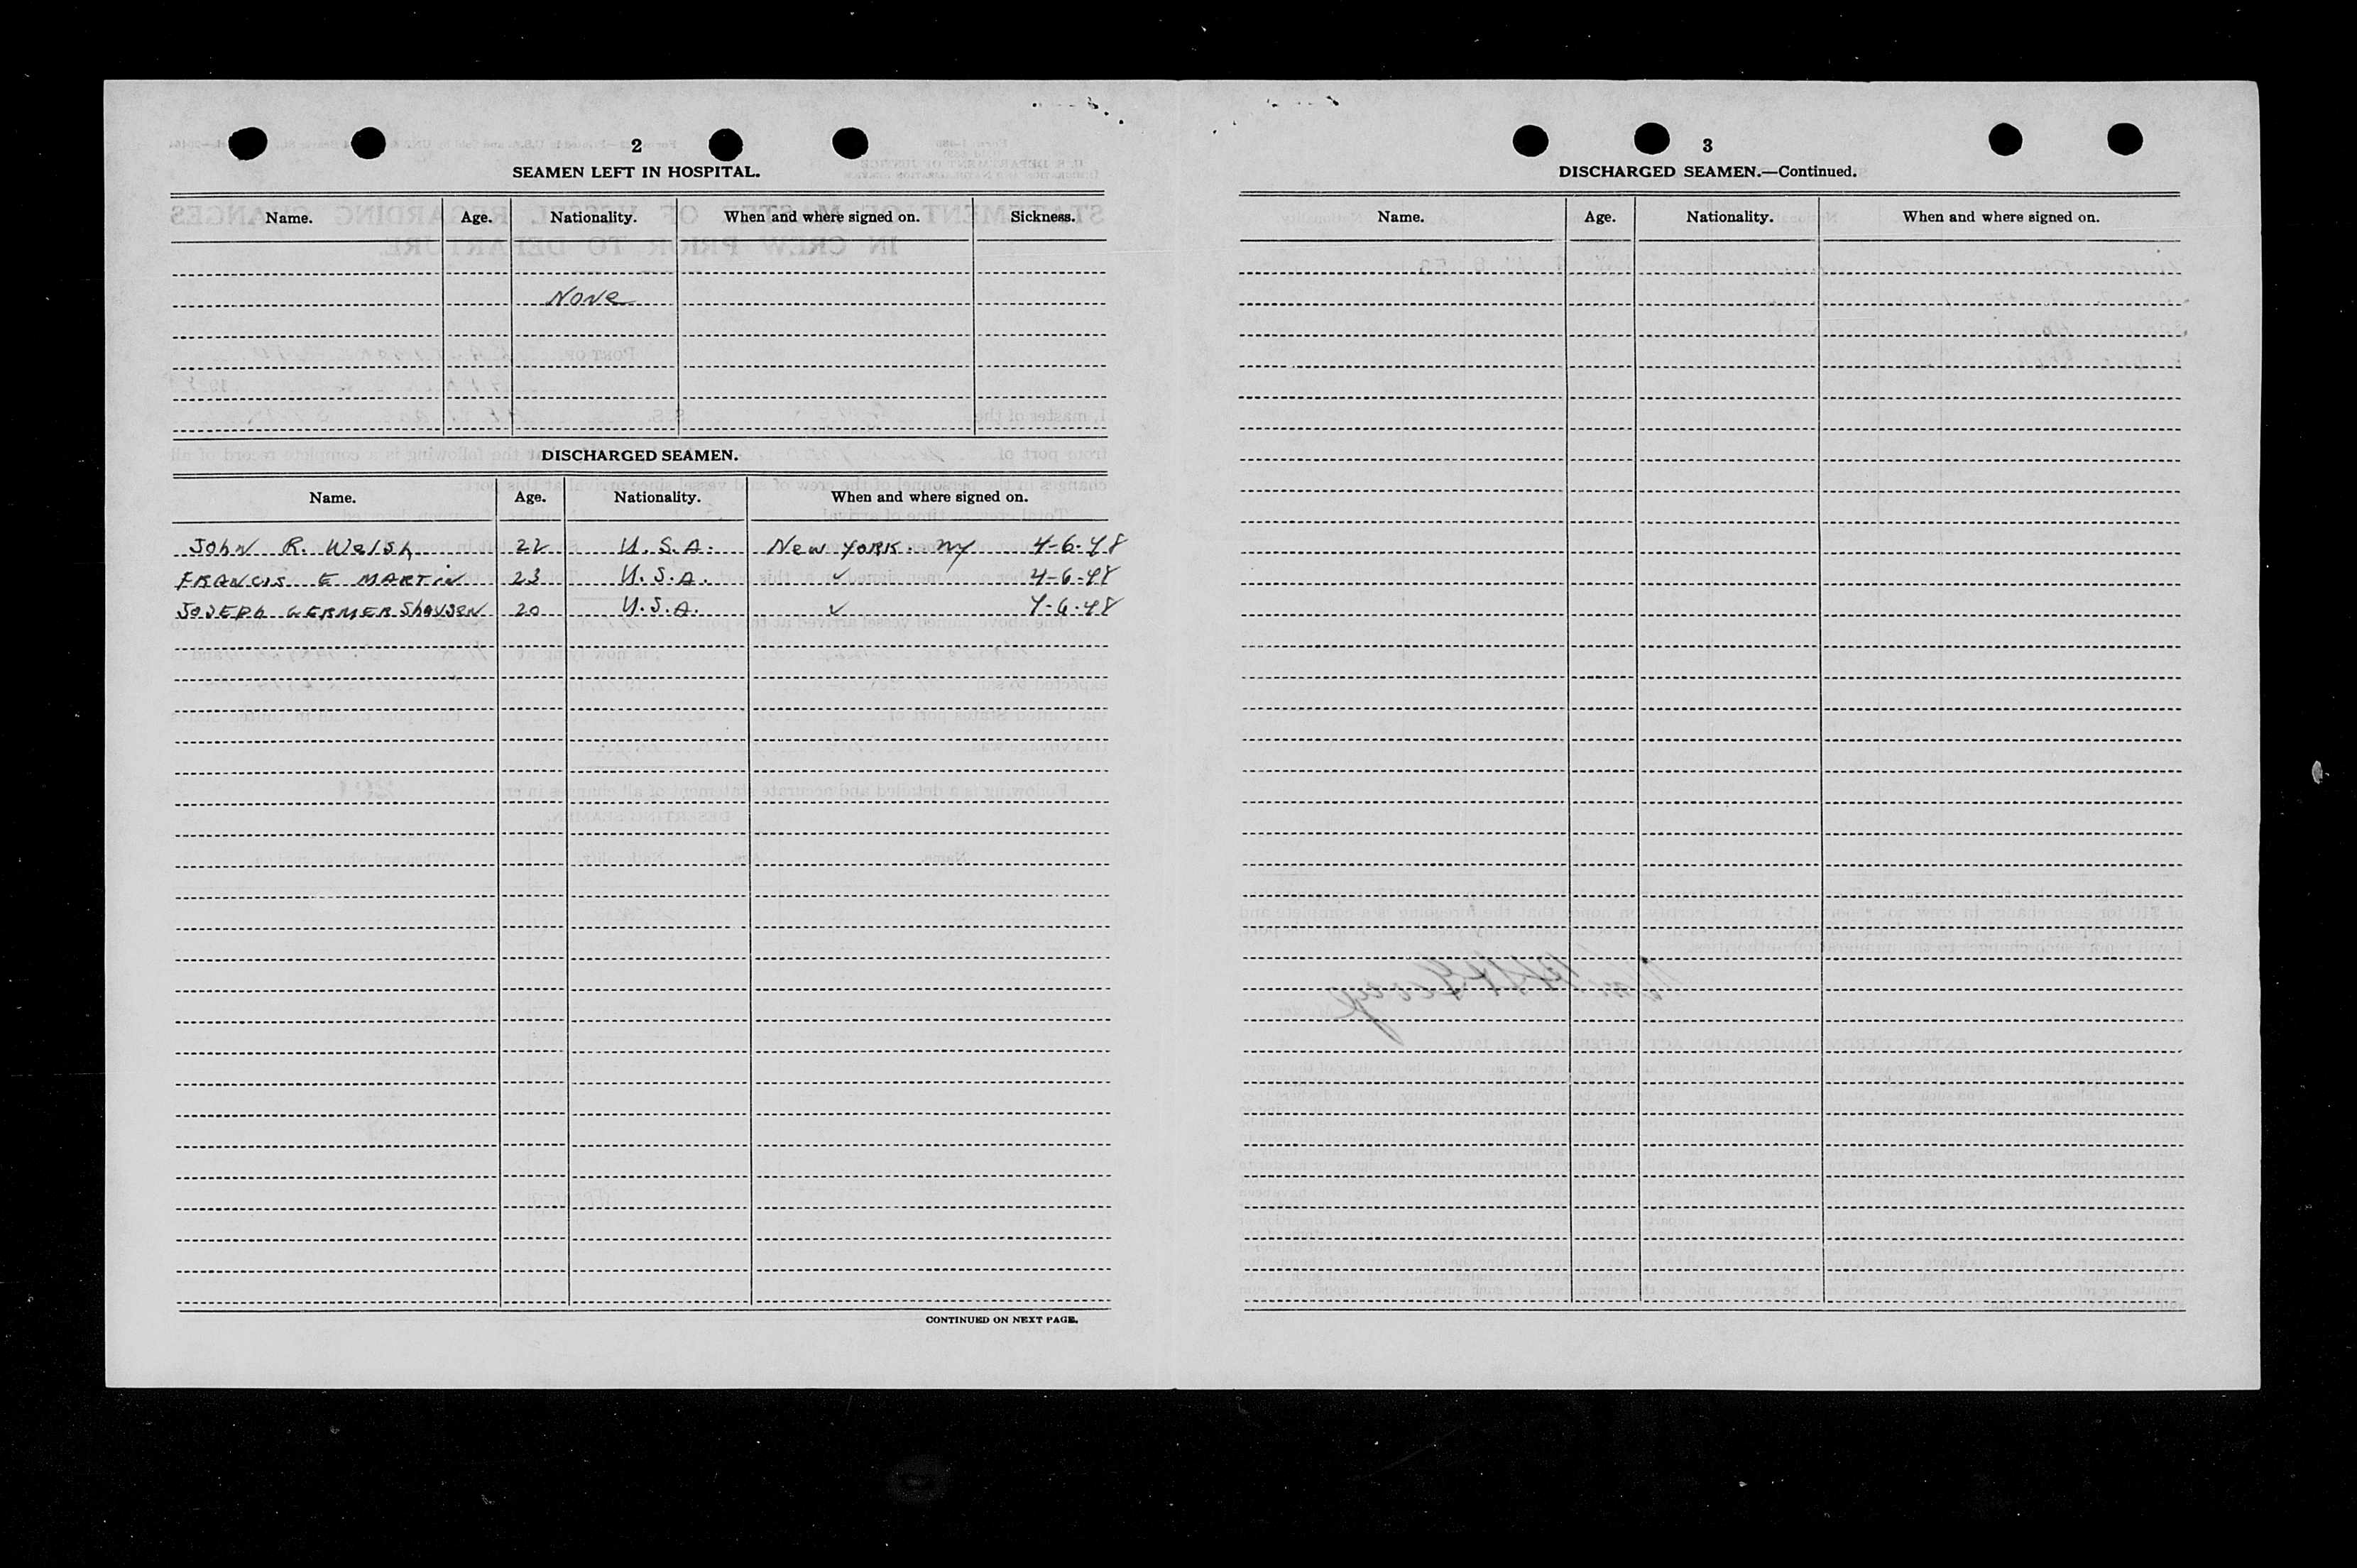 2
SEAMEN LEFT IN HOSPITAL.
Name. Age. Nationality. When and where signed on. Sickness.
None
DISCHARGED SEAMEN.
Name. Age. Nationality. When and where signed on.
John R. Welsh 22 U.S.A. New York. NY 4-6-48
FRANCIS E MARTIN 23 U.S.A. ✓ 4-6-48
JOSEPH GERMERShAUSEN 20 U.S.A. ✓ 4-6-48
CONTINUED ON NEXT PAGE.
3
DISCHARGED SEAMEN.—Continued.
Name. Age. Nationality. When and where signed on.